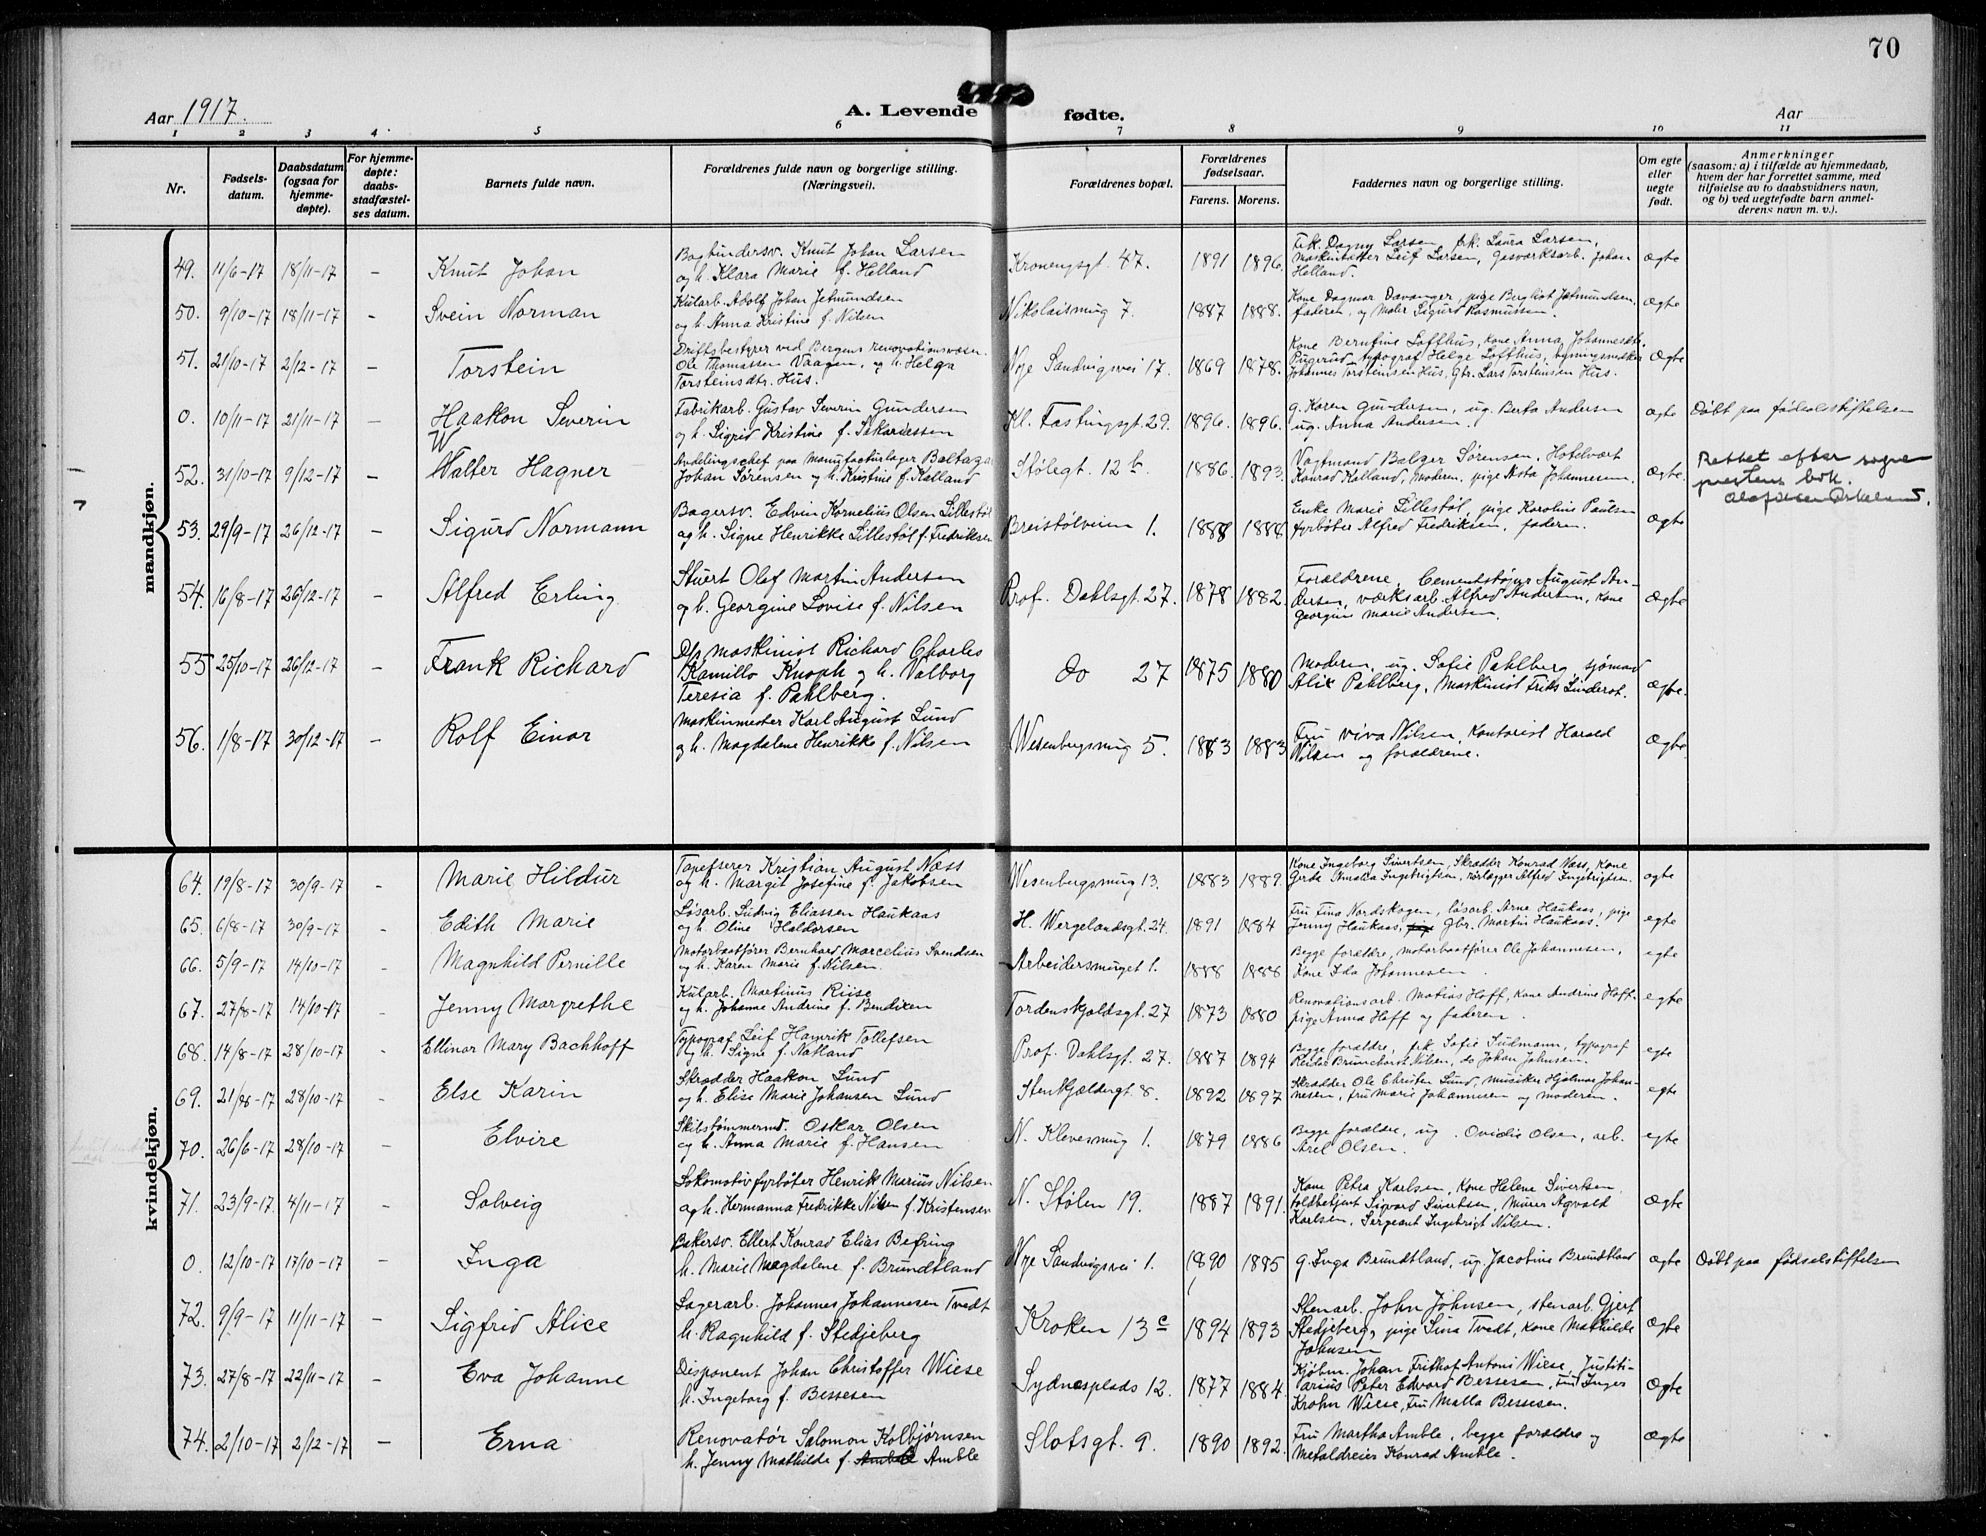 70
Aar 1917.
A. Levende fødte.
Aar
1 2 3 4 5 6 7 8 9 10 11
Nr.
Fødselsdatum.
Daabsdatum (ogsaa for hjemmedøpte).
For hjemmedøpte: daabsstadfæstelses datum.
Barnets fulde navn.
Forældrenes fulde navn og borgerlige stilling. (Næringsvei).
Forældrenes bopæl.
Forældrenes fødselsaar.
Farens. Morens.
Faddernes navn og borgerlige stilling.
Om egte eller uegte født.
Anmerkninger
(saasom: a) i tilfælde av hjemmedaab, hvem der har forrettet samme, med tilføielse av to daabsvidners navn, og b) ved uegtefødte barn anmelderens navn m. v.).
mandkjøn.
49. 11/6-17 18/11-17 - Knut Johan
Bogbindersv. Knut Johan Larsen
og h. Klara Marie f. Helland
Kronengsgt. 47. 1891 1896.
Frk. Dagny Larsen, frk. Laura Larsen,
Maskinsætter Leif Larsen, Gasværksarb. Johan
Helland.
Ægte
50. 9/10-17 18/11-17 - Svein Norman
Kularb. Adolf Johan Jetmundsen
og h. Anna Kristine f. Nilsen
Nikolaismug 7. 1887 1888.
Kone Dagmar Davanger, pige Bergliot Jetmundsen,
faderen, og Maler Sigurd Rasmussen.
Ægte
51. 21/10-17 2/12-17 - Torstein
Driftsbestyrer ved Bergens renovationsvæsen
Ole Thomassen Vaagen, og h. Helga
Torsteinsdtr. Hus.
Nye Sandvigsvei 17. 1869 1878.
Kone Berntine Lofthus, kone Anna Johannesdtr.
Pugerud, typograf Helge Lofthus,
Johannes Torsteinsen Hus, Gbr. Lars Torsteinsen Hus.
Ægte
0. 10/11-17 21/11-17 - Haakon Severin
Fabrikarb. Gustav Severin Gundersen
og h. Sigrid Kristine f. Sakariassen
Kl. Fastingsgt. 29. 1896. 1896.
g. Karen Gundersen, ug. Berta Andersen
ug. Anna Andersen.
Ægte Døbt paa fødselsstiftelsen
52. 31/10-17 9/12-17 - Walter Hagner
W
Avdelingschef paa Manufacturlager Baltazar
Johan Sørensen og h. Kristine f. Kalland
Stølegt. 12 b. 1886. 1893.
Vagtmand Balzer Sørensen, Hotelvært
Konrad Kalland, Moderen, pige Asta Johannesen.
Ægte. Rettet efter sogne
prestens bok.
53. 29/9-17 26/12-17 - Sigurd Normann
Bagersv. Edvin Kornelius Olsen Lillestøl
og h. Signe Henrikke Lillestøl f. Fredriksen
Breistølveien 1. 1888 1888
Enke Marie Lillestøl, pige Karoline Paulsen
fyrbøter Alfred Fredriksen, faderen.
Ægte
54. 16/8-17 26/12-17 - Alfred Erling
Stuert Olaf Martin Andersen
og h. Georgine Lovise f. Nilsen
Prof. Dahlsgt. 27. 1878 1882.
Forældrene, Cementstøper August An-
dersen, værksarb. Alfred Andersen, kone
Georgine Marie Andersen.
Ægte
55 25/10-17 26/12-17 - Frank Richard
Dp. maskinist Richard Charles
Kamillo Knoph og h. Valborg
Teresia f. Pahlberg.
do 27 1875 1880
Moderen, ug. Sofie Pahlberg, sjømand
Alik Pahlberg, Maskinist Friks Linderot.
Ægte.
56. 1/8-17 30/12-17 - Rolf Einar
Maskinmester Karl August Lund
og h. Magdalene Henrikke f. Nilsen
Wesenbergsmug 5. 1883 1883
Fru Viva Nilsen, Kontorist Harald
Nilsen og forældrene.
Ægte
kvindekjøn.
64. 19/8-17 30/9-17 - Marie Hildur
Tapetserer Kristian August Næss
og h. Margit Josefine f. Jakobsen
Wesenbergsmug 13. 1883 1889.
Kone Ingeborg Sivertsen, Skrædder Konrad Næss, Kone
Gerda Amalia Ingebrigtsen, rørlægger Alfred Ingebrigtsen.
ægte
65. 6/8-17 30/9-17 - Edith Marie
Løsarb. Ludvig Eliassen Haukaas
og h. Oline Haldorsen
H. Wergelandsgt. 24. 1891 1884
Fru Tina Nordskogen, løsarb. Arne Haukaas, pige
Jenny Haukaas, Gbr. Martin Haukaas.
egte
66. 5/9-17 14/10-17 - Magnhild Pernille
Motorbaatfører Bernhard Marcelius Svendsen
og h. Karen Marie f. Nilsen.
Arbeidersmuget 1. 1888 1888
Begge forældre, motorbaatfører Ole Johannesen,
Kone Ida Johannesen.
egte
67. 27/8-17 14/10-17 - Jenny Margrethe
Kularb. Martinus Riise
og h. Johanne Andrine f. Bendixen
Tordenskjoldsgt. 27 1873 1880
Renovationsarb. Matias Hoff, kone Andrine Hoff,
pige Anna Hoff og faderen.
egte
68. 14/8-17 28/10-17 - Ellinor Mary Bachhoff
Typograf Leif Hamrik Tollefsen
og h. Signe f. Natland
Prof. Dahlsgt. 27. 1887 1894
Begge forældre, frk. Sofie Sudmann, typograf
Reidar Brunchorst Nilsen, do Johan Johnsen.
egte
69. 21/8-17 28/10-17 - Else Karin
Skrædder Haakon Lund
og h. Elise Marie Johansen Lund
Stenkjældergt. 8. 1892 1897
Skrædder Ole Christen Lund, musiker Hjalmar Johan-
nesen, fru Marie Johannesen og moderen.
egte
70. 26/6-17 28/10-17 - Elvire
Skibstømmermd. Oskar Olsen
og h. Anna Marie f. Hansen
N. Klevesmug 1. 1879 1886
Begge forældre, ug. Ovidie Olsen, arb.
Axel Olsen.
egte
71. 23/9-17 4/11-17 - Solveig
Lokomotivfyrbøter Henrik Marius Nilsen
og h. Hermanna Fredrikke Nilsen f. Kristensen
N. Stølen 19. 1887 1891.
Kone Petra Karlsen, Kone Helene Sivertsen
toldbetjent Sigvard Sivertsen, Murer Agvald
Karlsen, Sergeant Ingebrigt Nilsen.
Ægte
0. 12/10-17 17/10-17 - Inga
Bakersv. Ellert Konrad Elias Befring
h. Marie Magdalene f. Brundtland
Nye Sandvigsvei 1. 1890 1885
g. Inga Brundtland, ug. Jacobine Brundtland
Ægte Døbt paa fødselstiftelsen
72. 9/9-17 11/11-17 - Sigfrid Alice
Lagerarb. Johannes Johannesen Tvedt
h. Ragnhild f. Stedjeberg
Kroken 13 c 1894 1893
Stenarb. John Johnsen, stenarb. Gjert
Stedjeberg, pige Sina Tvedt, kone Mathilde
Johnsen
Ægte
73. 27/8-17 22/11-17 - Eva Johanne
Disponent Johan Christoffer Wiese
h. Ingeborg f. Bessesen
Sydnesplads 12. 1877 1884.
Kjøbm. Johan Frithof Antoni Wiese, Justiti-
arius Peter Edvard Bessesen, fru Inger
Krohn Wiese, Fru Malla Bessesen.
Ægte
74. 2/10-17 2/12-17 - Erna
Renovatør Salomon Kolbjørnsen
h. Jenny Mathilde f. Amble
Slotsgt. 9. 1890 1892.
Fru Martha Amble, begge forældre og
Metaldreier Konrad Amble.
Ægte